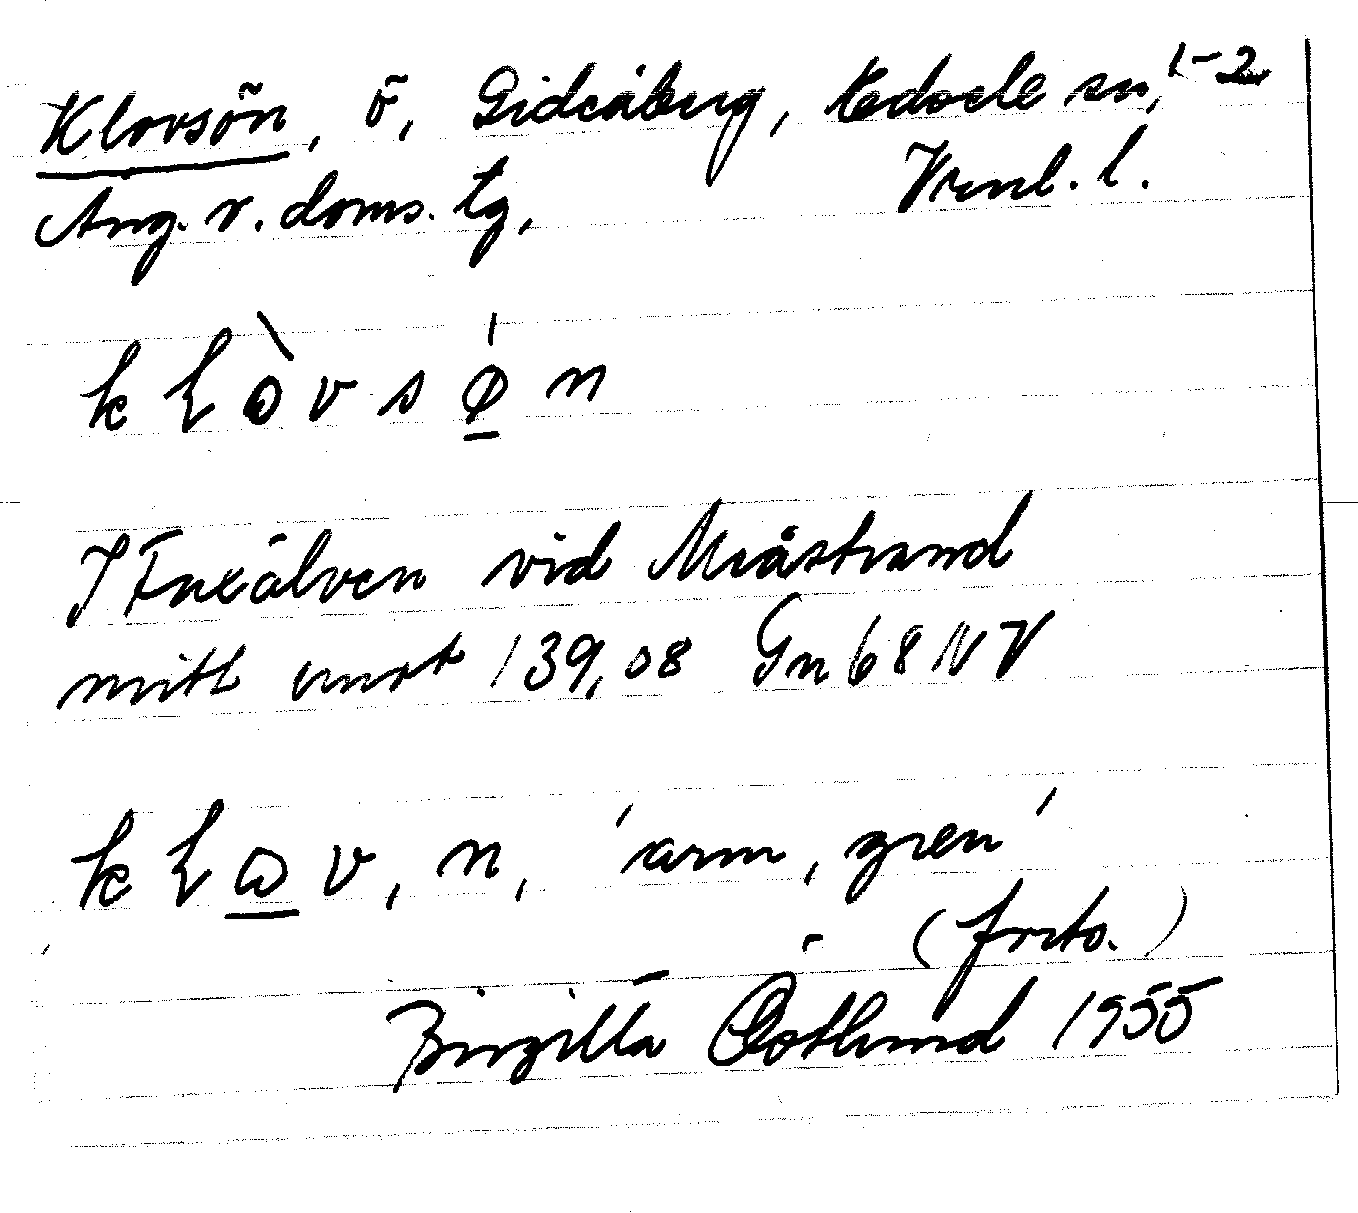 Klovsön, ö, Gideåberg, Edsele sn, 1-2
Ång. v. doms. tg, Vrnl. l.
k l ò v s ø n
I Faxälven vid Mråstrand
mitt emot 139,08 Gn 68 NV
k l ɷ v, n, 'arm, gren'
(forts.)
Birgitta Östlund 1955